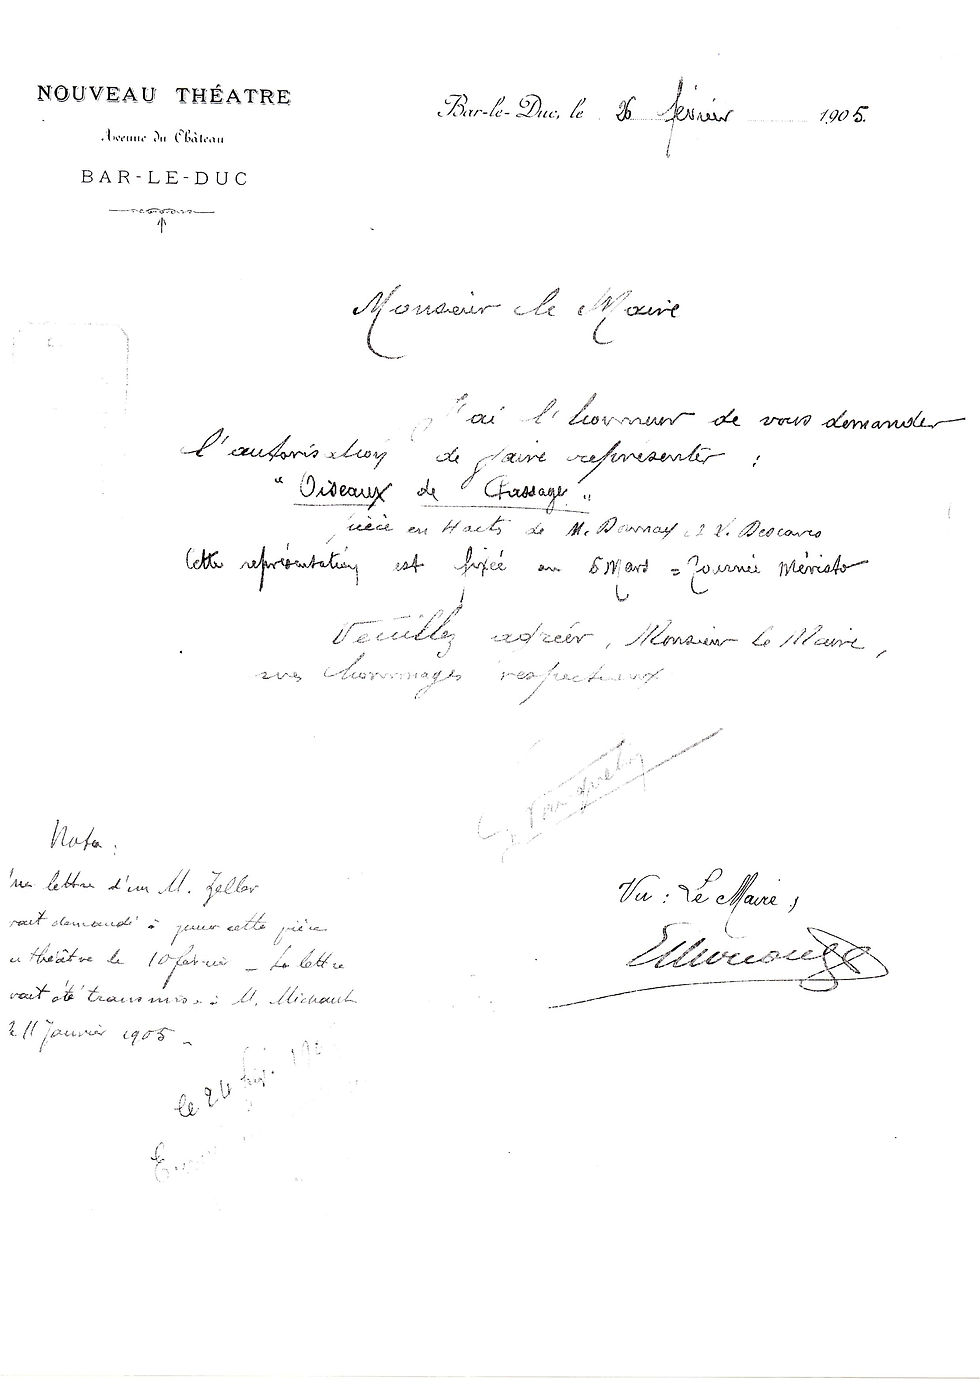 NOUVEAU THÉATRE
Avenue du Château
BAR-LE-DUC
Bar-le-Duc, le 26 février 1905.
Monsieur le Maire
J'ai l'honneur de vous demander
l'autorisation de faire représenter :
"Oiseaux de Passage"
pièce en 4 acts de M. Donnay & L. Descaves
Cette représentation est fixée au 5 Mars = Tournée Méristo
Veuillez agréer, Monsieur le Maire,
mes hommages respectueux
Nota :
une lettre d'un M. Zeller
vait demandé à jouer cette pièce
u théâtre le 10 février _ La lettre
vait été transmise à M. Michault
11 Janvier 1905 _
le 24
Vu : Le Maire,